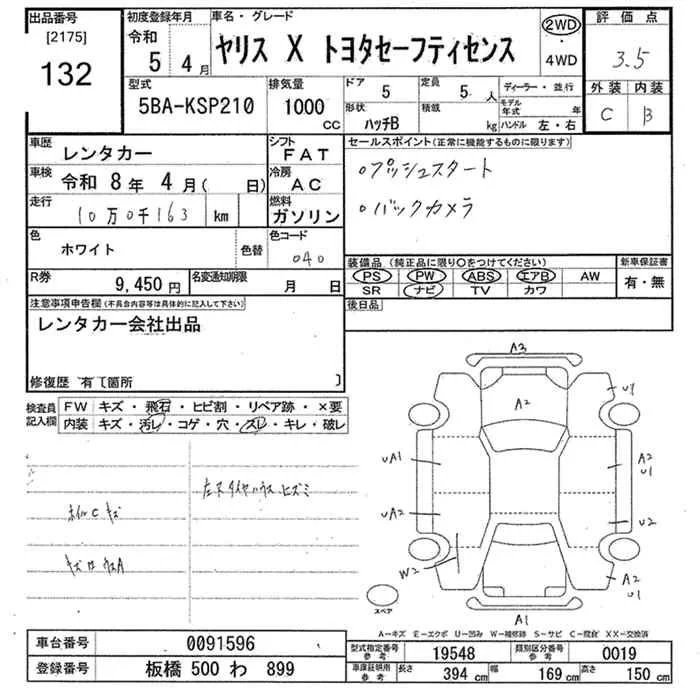 出品番号
[2175]
132
初度登録年月
令和
5 4月
車名・グレード
ヤリス X トヨタセーフティセンス
2WD
・
4WD
評価点
3.5
外装 内装
C B
型式
5BA-KSP210
排気量
1000
cc
ドア 5
定員 5人
形状 ハッチB
積載 kg
ディーラー・並行
モデル年式 年
ハンドル 左・右
車歴 レンタカー
シフト FAT
車検 令和 8年 4月( 日)
冷房 AC
走行 10万0千163 km
燃料 ガソリン
色 ホワイト 色替
色コード 040
R券 9,450円
名変通知期限 月 日
セールスポイント(正常に機能するものに限ります)
○プッシュスタート
○バックカメラ
装備品(純正品に限り○をつけてください)
PS PW ABS エアB AW
SR ナビ TV カワ
新車保証書
有・無
後日品
注意事項申告欄(不具合内容等は具体的に記入して下さい)
レンタカー会社出品
修復歴 有〔箇所 〕
検査員記入欄
FW キズ・飛石・ヒビ割・リペア跡・×要
内装 キズ・汚レ・コゲ・穴・スレ・キレ・破レ
ホイルC キズ
A3
A2
U1
UA1
A2
U1
UA2
U2
W2
A2
U1
A1
スペア
A-キズ E-エクボ U-凹み W-補修跡 S-サビ C-腐食 XX-交換済
車台番号 0091596
登録番号 板橋 500 わ 899
型式指定番号 参考 19548
類別区分番号 参考 0019
車庫証明用 参考
長さ 394 cm
幅 169 cm
高さ 150 cm